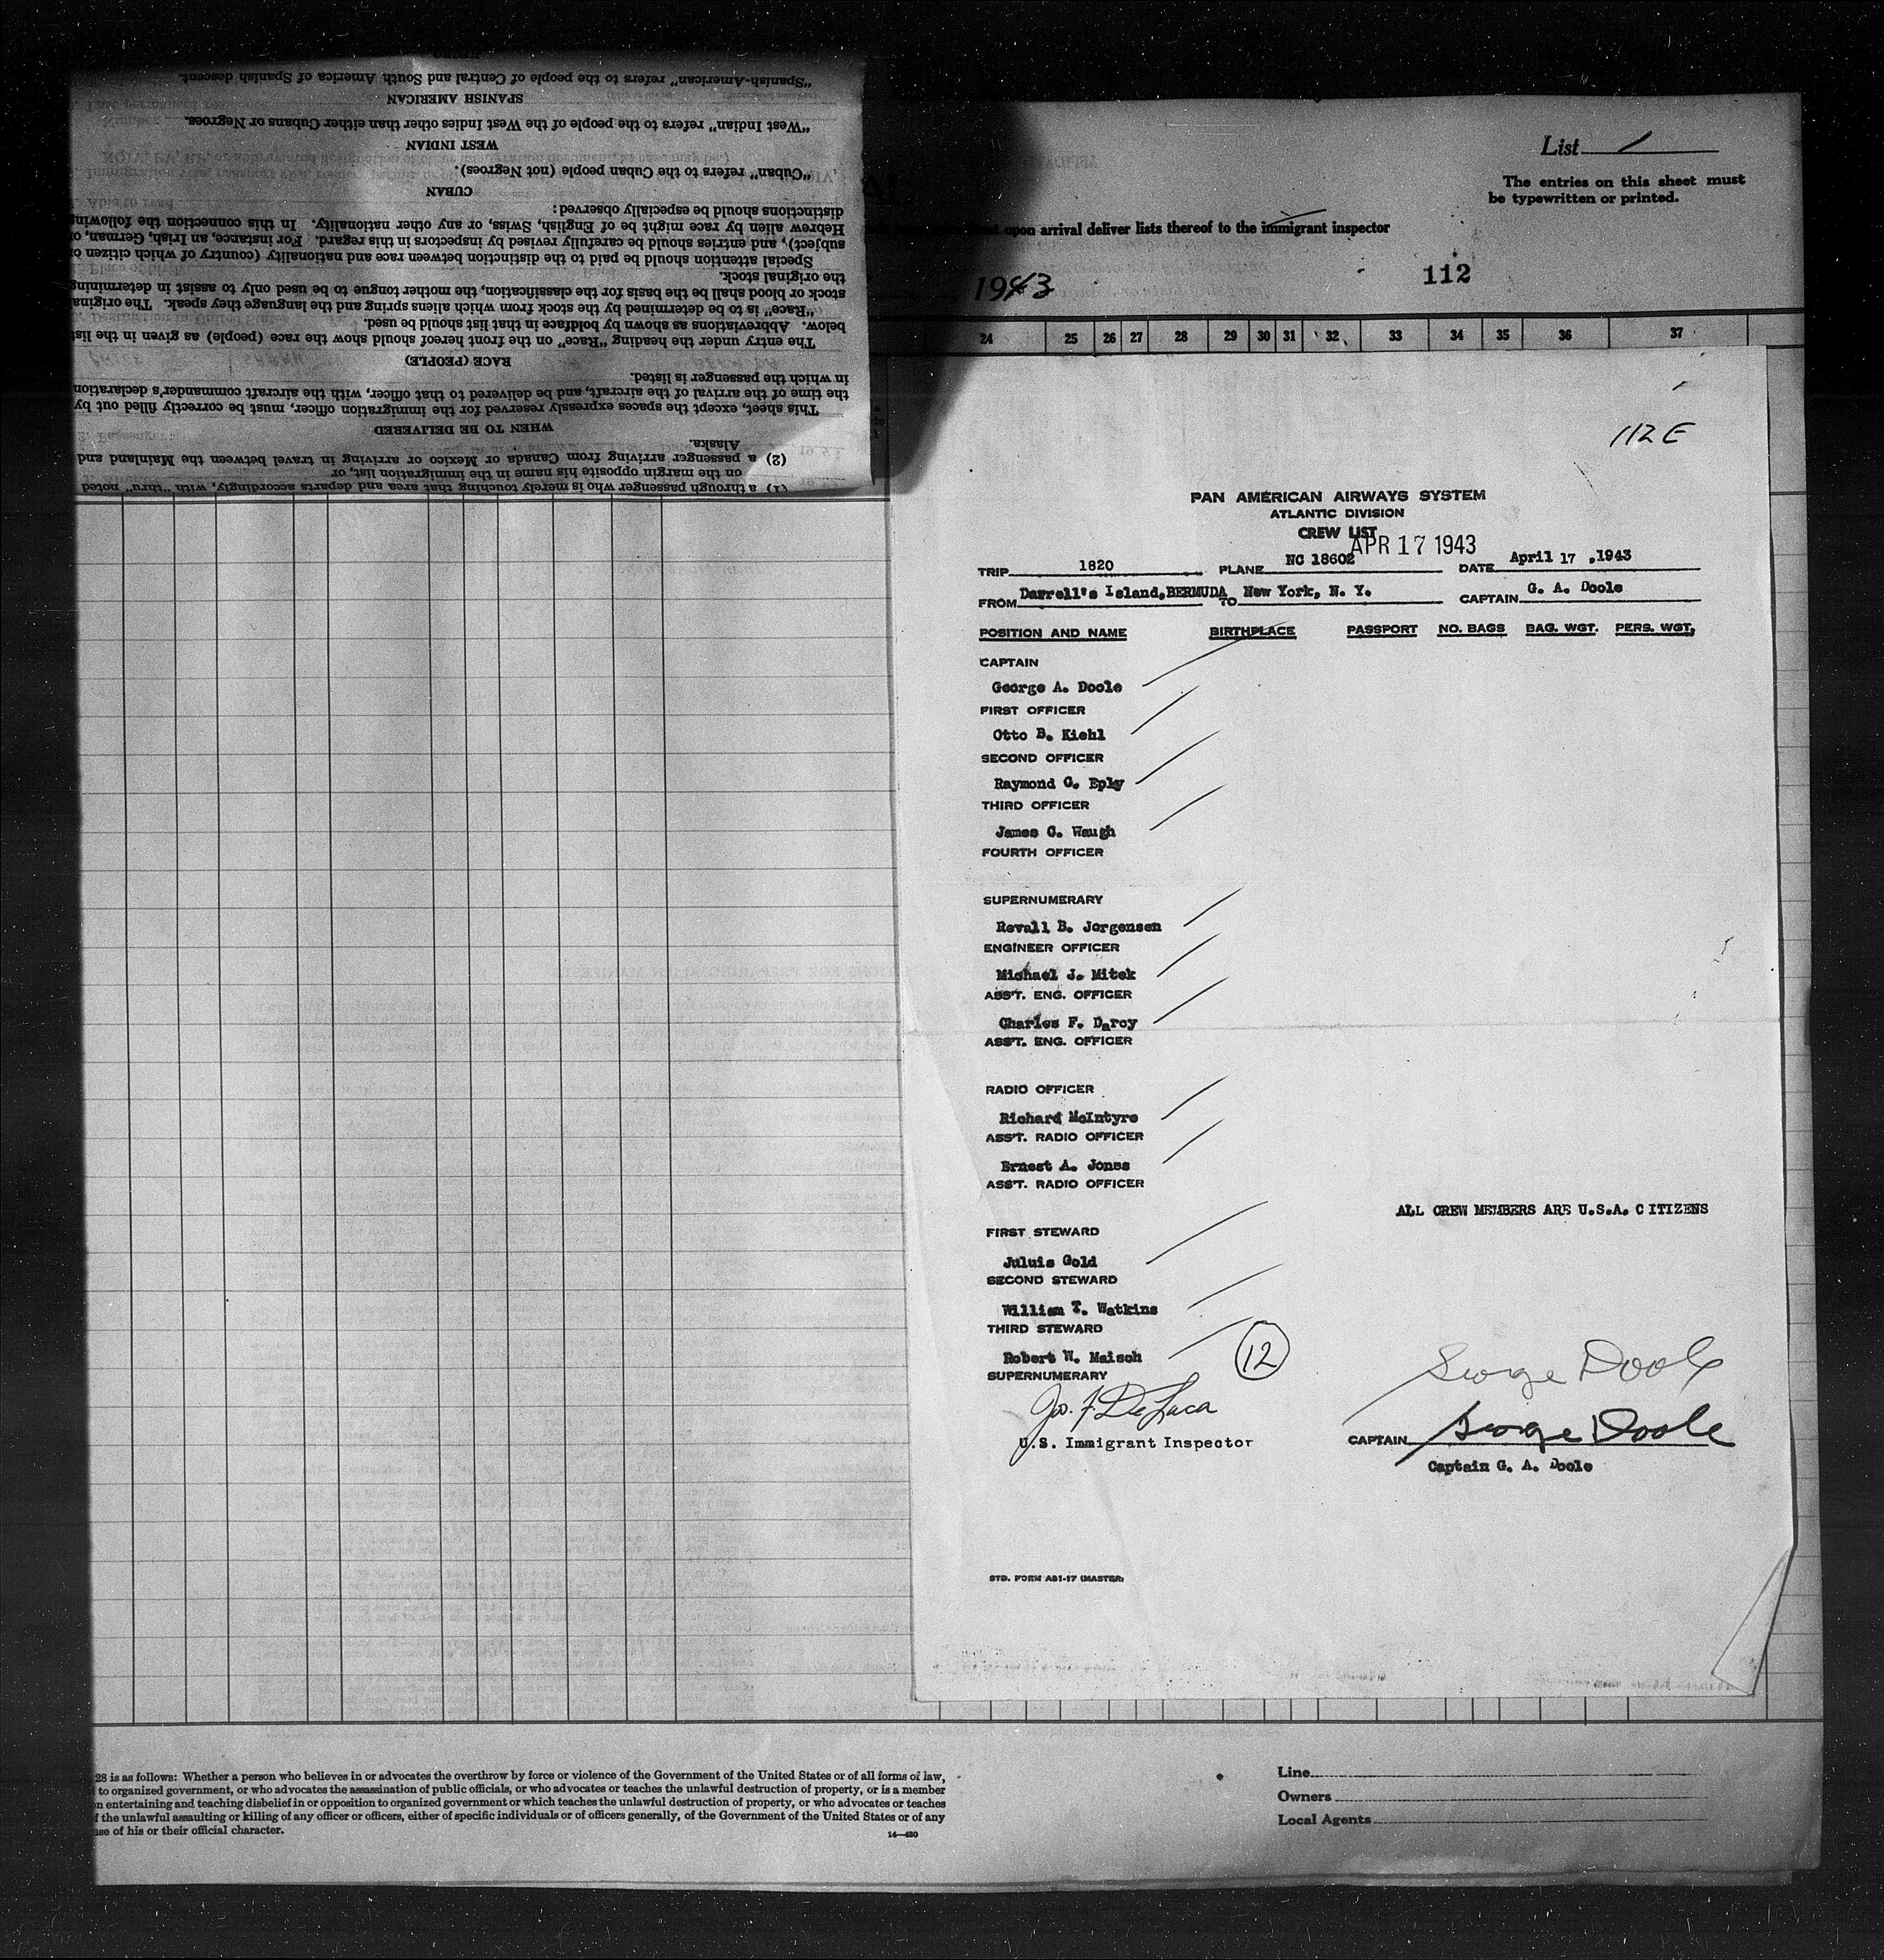 "Spanish-American" refers to the people of Central and South America of Spanish descent.
SPANISH AMERICAN
"West Indian" refers to the people of the West Indies other than either Cubans or Negroes.
WEST INDIAN
"Cuban" refers to the Cuban people (not Negroes).
CUBAN
distinctions should be especially observed:
Hebrew alien by race might be of English, Swiss, or any other nationality. In this connection the following
subject), and entries should be carefully revised by inspectors in this regard. For instance, an Irish, German, or
Special attention should be paid to the distinction between race and nationality (country of which citizen or
the original stock.
stock or blood shall be the basis for the classification, the mother tongue to be used only to assist in determining
"Race" is to be determined by the stock from which aliens spring and the language they speak. The original
below. Abbreviations as shown by boldface in that list should be used.
The entry under the heading "Race" on the front hereof should show the race (people) as given in the list
RACE (PEOPLE)
in which the passenger is listed.
the time of the arrival of the aircraft, and be delivered to that officer, with the aircraft commander's declaration
This sheet, except the spaces expressly reserved for the immigration officer, must be correctly filled out by
WHEN TO BE DELIVERED
Alaska.
(2) a passenger arriving from Canada or Mexico or arriving in travel between the Mainland and
on the margin opposite his name in the immigration list, or
(1) a through passenger who is merely touching that area and departs accordingly, with "thru" noted
List /
The entries on this sheet must
be typewritten or printed.
upon arrival deliver lists thereof to the immigrant inspector
1943
112
24 25 26 27 28 29 30 31 32 33 34 35 36 37
112 E
PAN AMERICAN AIRWAYS SYSTEM
ATLANTIC DIVISION
CREW LIST
APR 17 1943
TRIP 1820 PLANE NC 18602 DATE April 17 ,1943
FROM Darrell's Island,BERMUDA TO New York, N. Y. CAPTAIN G. A. Doole
POSITION AND NAME BIRTHPLACE PASSPORT NO. BAGS BAG. WGT. PERS. WGT.
CAPTAIN
George A. Doole
FIRST OFFICER
Otto B. Kiehl
SECOND OFFICER
Raymond G. Eply
THIRD OFFICER
James C. Waugh
FOURTH OFFICER
SUPERNUMERARY
Revall B. Jorgensen
ENGINEER OFFICER
Michael J. Mitek
ASS'T. ENG. OFFICER
Charles F. Darcy
ASS'T. ENG. OFFICER
RADIO OFFICER
Richard McIntyre
ASS'T. RADIO OFFICER
Ernest A. Jones
ASS'T. RADIO OFFICER
ALL CREW MEMBERS ARE U.S.A. CITIZENS
FIRST STEWARD
Juluis Gold
SECOND STEWARD
William T. Watkins
THIRD STEWARD
Robert W. Maisch
12
SUPERNUMERARY
George Doole
Jos. F. De Luca
U.S. Immigrant Inspector
CAPTAIN George Doole
Captain G. A. Doole
STD. FORM AS1-17 (MASTER)
28 is as follows: Whether a person who believes in or advocates the overthrow by force or violence of the Government of the United States or of all forms of law,
to organized government, or who advocates the assassination of public officials, or who advocates or teaches the unlawful destruction of property, or is a member
entertaining and teaching disbelief in or opposition to organized government or which teaches the unlawful destruction of property, or who advocates or teaches
f the unlawful assaulting or killing of any officer or officers, either of specific individuals or of officers generally, of the Government of the United States or of any
use of his or their official character.
14—430
Line
Owners
Local Agents